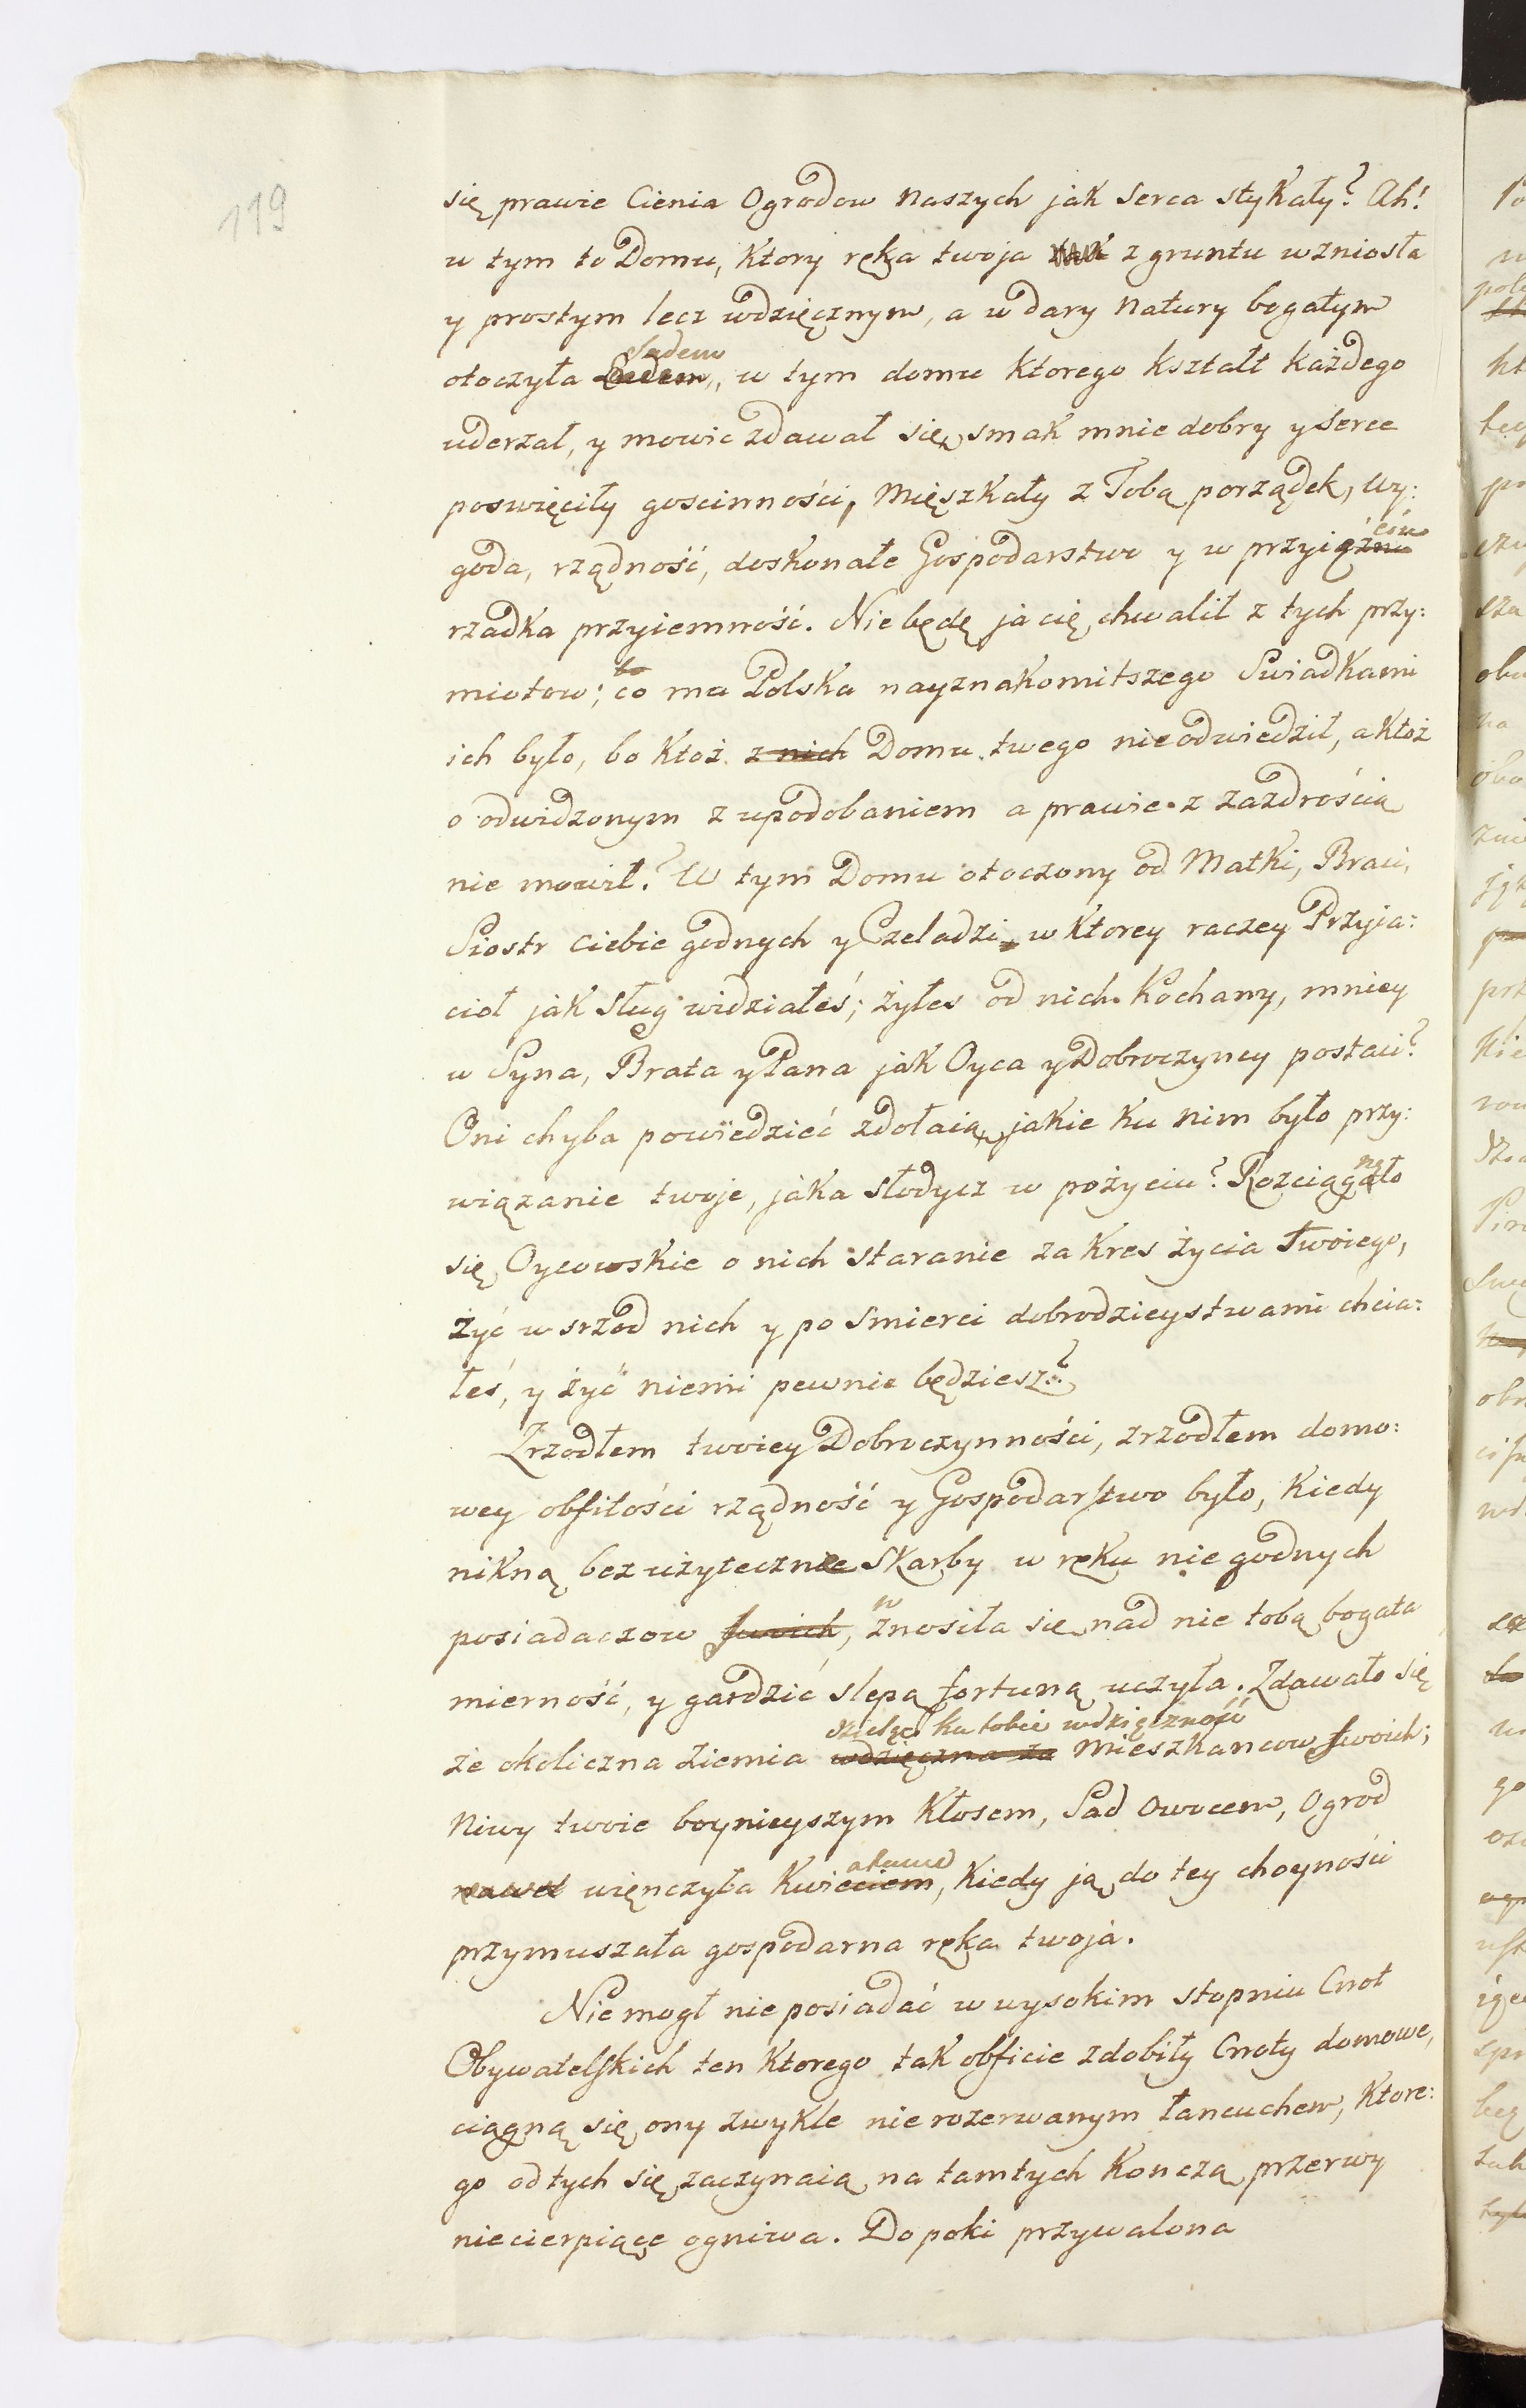 119
się prawie Cienia Ogrodow naszych jak serca stykały? Ah!
w tym to Domu, ktory ręka twoja z gruntu wzniosła
y prostym lecz wdzięcznym, a w dary natury bogatym
Sadem
otoczyła w tym domu ktorego kształt każdego
uderzał, y mowic zdawał się, smak mnie dobry y serce
poswięciły goscinności, Mięszkały z Tobą porządek, wy:
ciu
goda, rządność, doskonałe Gospodarstwo y w przyiaźni
rzadka przyiemność. Nie będę ja cię chwalił z tych przy:
bo
miotow; co ma Polska nayznakomitszego Swiadkami
ich było, bo ktoż z nich Domu twego nie odwiedził, a ktoż
o odwidzonym z upodobaniem a prawie z zazdrością
nie mowił? W tym Domu otoczony od Matki, Braci,
Siostr ciebie godnych y Czeladzi w ktorey raczey Przyia:
cioł jak sług widziałeś; żyłes od nich kochany, mniey
w Syna, Brata y Pana jak Oyca y Dobroczyncy postaci?
Oni chyba powiedzieć zdołaią, jakie ku nim było przy:
wiązanie twoje, jaka słodycz w pożyciu? Rozciągało
się Oycowskie o nich staranie za kres życia twoiego,
żyć w srzod nich y po smierci dobrodzieystwami chcia:
łeś, y żyć niemi pewnie będziesz?
Zrzodłem twoiey Dobroczynności, zrzodłem domo:
wey obfitości rządność y Gospodarstwo było, kiedy
nikną bezużytecznie skarby w ręku niegodnych
w
posiadaczow swoich, znosiła się nad nie tobą bogata
mierność, y gardzić slepą fortuną uczyła. Zdawało się
dzieląc ku tobie wdzięczność
że okoliczna ziemia wdzięczna za Mieszkancow swoich;
Niwy twoie boynieyszym kłosem, Sad owocem, Ogrod
nawet więnczyła kwieciem, kiedy ją do tey choyności
przymuszała gospodarna ręka twoja.
Nie mogł nie posiadać w wysokim stopniu Cnot
Obywatelskich ten ktorego tak obficie zdobiły Cnoty domowe,
ciągną się ony zwykle nierozerwanym łancuchem, ktore:
go od tych się zaczynaią, na tamtych konczą przerwy
niecierpiące ogniwa. Do poki przywalona